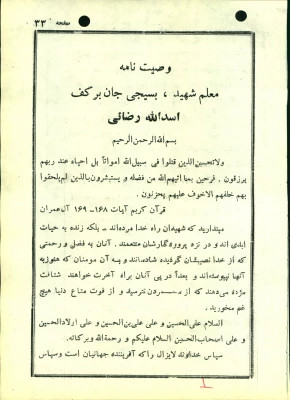 صفحه ۳۳
وصیت نامه
معلم شهید ، بسیجی جان برکف
اسدالله رضائی
بسم‌الله‌الرحمن‌الرحیم
ولاتحسبن‌الذین قتلوا فی سبیل‌الله امواتاً بل احیاء عند ربهم
یرزقون . فرحین بما اتیهم‌الله من فضله و یستبشرون‌بالذین لم‌یلحقوا
بهم خلفهم الاخوف علیهم یحزنون .
قرآن کریم آیات ۱۶۸- ۱۶۹ آل‌عمران
مپندارید که شهیدان راه خدا مرده‌اند . بلکه زنده به حیات
ابدی اند و در نزد پروردگارشان متنعمند . آنان به فضل و رحمتی
که از خدا نصیبشان گردیده شادمانند و به آن مومنان که هنوز به
آنها نپیوسته‌اند و بعداً در پی آنان براه آخرت خواهند شتافت
مژده می‌دهند که از مردن نترسید و از فوت متاع دنیا هیچ
غم مخورید .
السلام علی‌الحسین و علی علی‌بن‌الحسین و علی اولادالحسین
و علی اصحاب‌الحسین السلام علیکم و رحمة‌الله وبرکاته .
سپاس خداوند لایزال را که آفریننده جهانیان است وسپاس